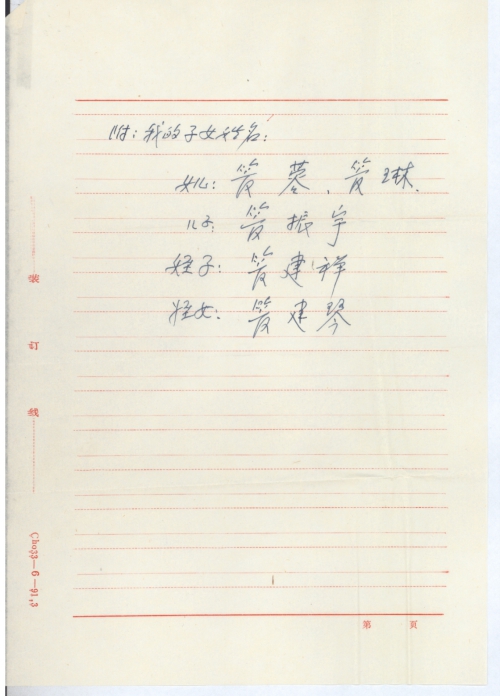 附：我的子女姓名：
女儿： 、 琳.
儿子： 振宇
侄子： 建祥
侄女： 建琴
装
订
线
Cho33—6—91,3
第 頁